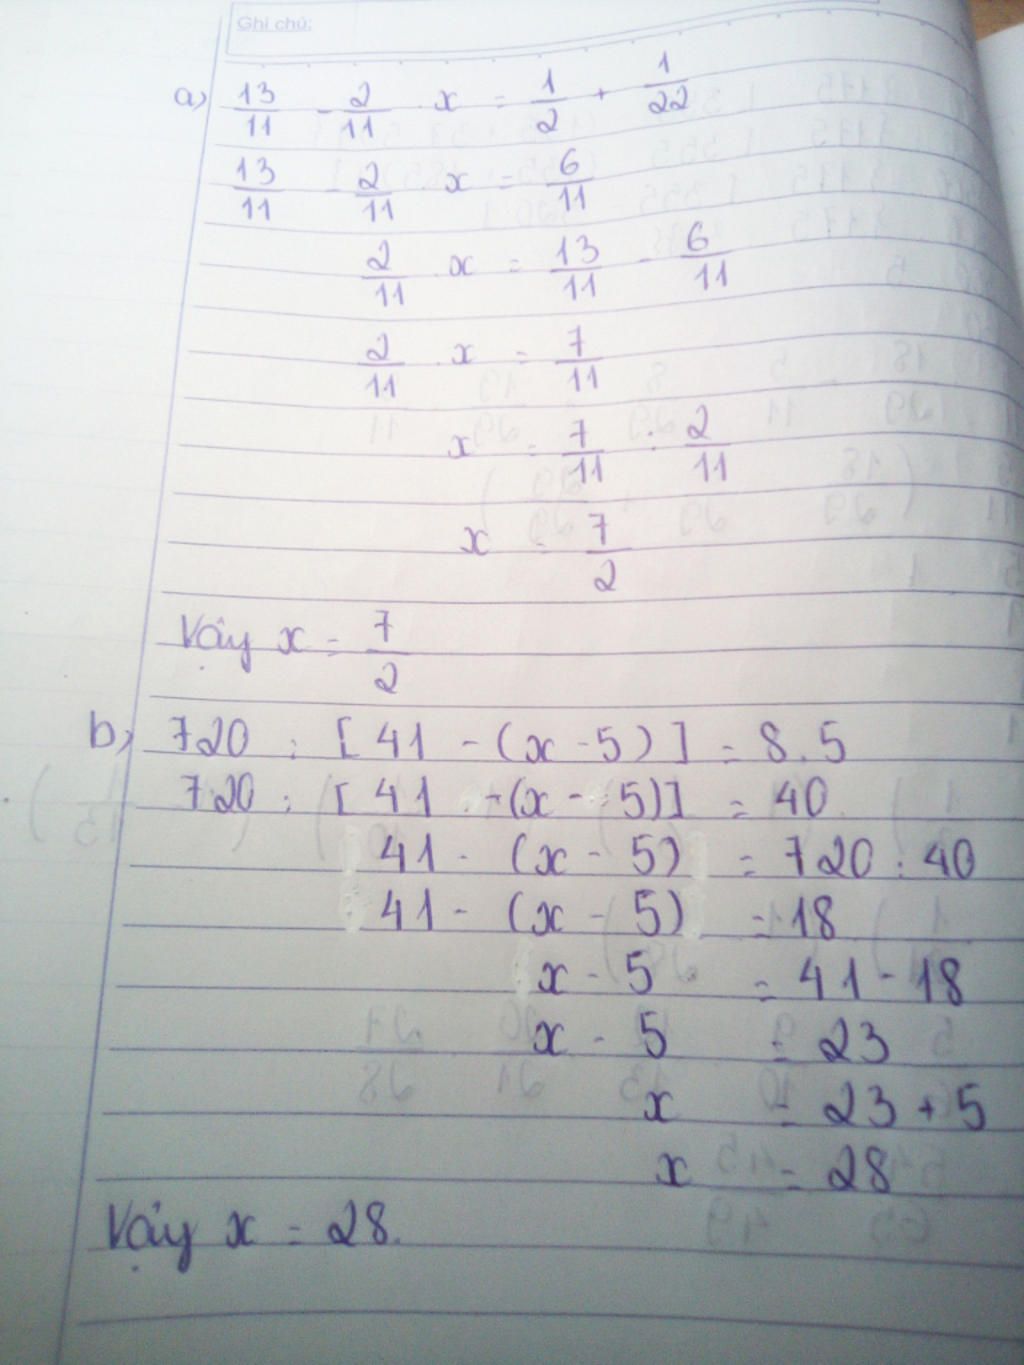 Ghi chú:
a) 13/11 - 2/11 . x = 1/2 + 1/22
13/11 - 2/11 x = 6/11
2/11 . x = 13/11 - 6/11
2/11 . x = 7/11
x = 7/11 : 2/11
x = 7/2
Vậy x = 7/2
b) 720 : [ 41 - (x - 5) ] = 8.5
720 : [ 41 - (x - 5)] = 40
41 - (x - 5) = 720 : 40
41 - (x - 5) = 18
x - 5 = 41 - 18
x - 5 = 23
x = 23 + 5
x = 28
Vậy x = 28.